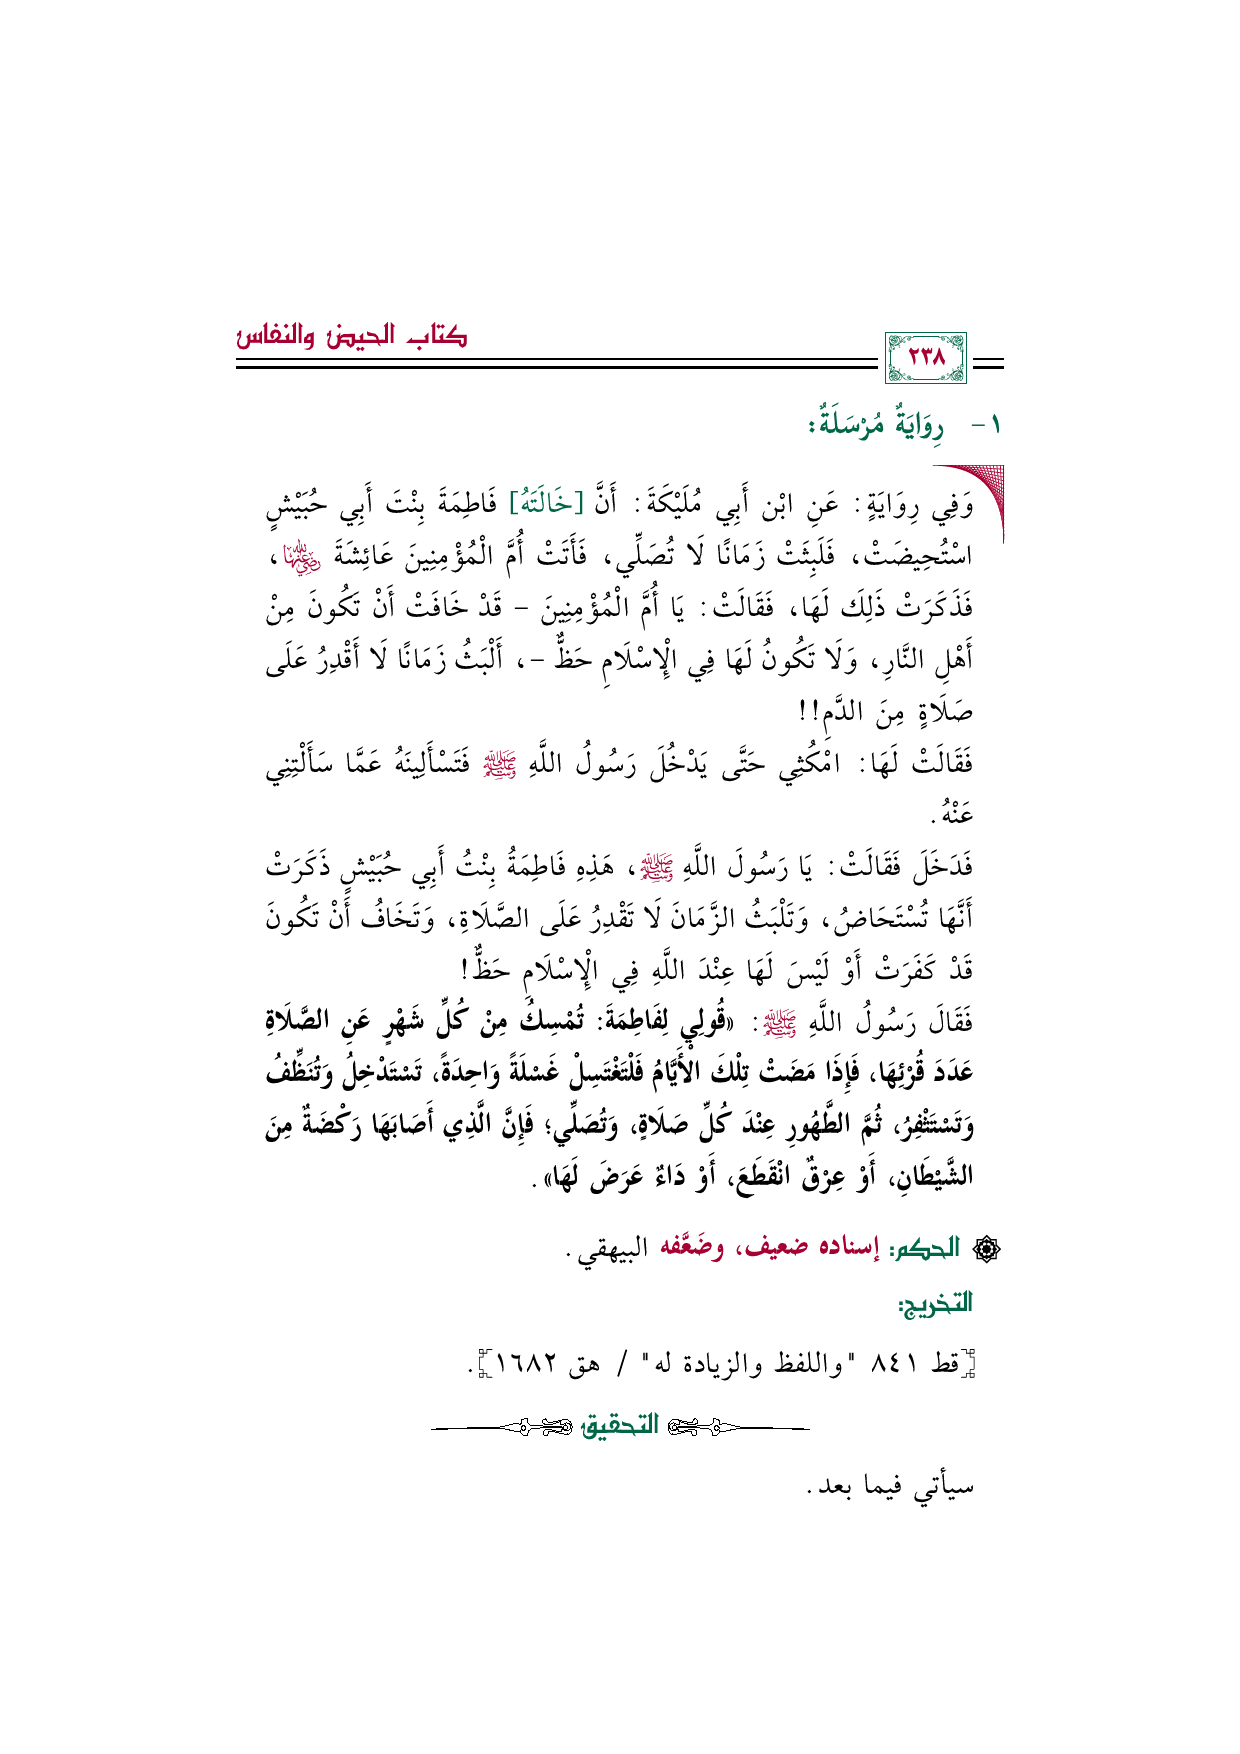 كتاب الحيض والنفاس
٢٣٨
١- رِوَايَةٌ مُرْسَلَةٌ:
وَفِي رِوَايَةٍ: عَنِ ابْن أَبِي مُلَيْكَةَ: أَنَّ [خَالَتَهُ] فَاطِمَةَ بِنْتَ أَبِي حُبَيْشٍ
اسْتُحِيضَتْ، فَلَبِثَتْ زَمَانًا لَا تُصَلِّي، فَأَتَتْ أُمَّ الْمُؤْمِنِينَ عَائِشَةَ رضي الله عنها،
فَذَكَرَتْ ذَلِكَ لَهَا، فَقَالَتْ: يَا أُمَّ الْمُؤْمِنِينَ - قَدْ خَافَتْ أَنْ تَكُونَ مِنْ
أَهْلِ النَّارِ، وَلَا تَكُونُ لَهَا فِي الْإِسْلَامِ حَظٌّ -، أَلْبَثُ زَمَانًا لَا أَقْدِرُ عَلَى
صَلَاةٍ مِنَ الدَّمِ!!
فَقَالَتْ لَهَا: امْكُثِي حَتَّى يَدْخُلَ رَسُولُ اللَّهِ ﷺ فَتَسْأَلِينَهُ عَمَّا سَأَلْتِنِي
عَنْهُ.
فَدَخَلَ فَقَالَتْ: يَا رَسُولَ اللَّهِ ﷺ، هَذِهِ فَاطِمَةُ بِنْتُ أَبِي حُبَيْشٍ ذَكَرَتْ
أَنَّهَا تُسْتَحَاضُ، وَتَلْبَثُ الزَّمَانَ لَا تَقْدِرُ عَلَى الصَّلَاةِ، وَتَخَافُ أَنْ تَكُونَ
قَدْ كَفَرَتْ أَوْ لَيْسَ لَهَا عِنْدَ اللَّهِ فِي الْإِسْلَامِ حَظٌّ!
فَقَالَ رَسُولُ اللَّهِ ﷺ: «قُولِي لِفَاطِمَةَ: تُمْسِكُ مِنْ كُلِّ شَهْرٍ عَنِ الصَّلَاةِ
عَدَدَ قُرْئِهَا، فَإِذَا مَضَتْ تِلْكَ الْأَيَّامُ فَلْتَغْتَسِلْ غَسْلَةً وَاحِدَةً، تَسْتَدْخِلُ وَتُنَظِّفُ
وَتَسْتَثْفِرُ، ثُمَّ الطَّهُورِ عِنْدَ كُلِّ صَلَاةٍ، وَتُصَلِّي؛ فَإِنَّ الَّذِي أَصَابَهَا رَكْضَةٌ مِنَ
الشَّيْطَانِ، أَوْ عِرْقٌ انْقَطَعَ، أَوْ دَاءٌ عَرَضَ لَهَا».
الحكم: إسناده ضعيف، وضَعَّفه البيهقي.
التخريج:
[قط ٨٤١ "واللفظ والزيادة له" / هق ١٦٨٢].
التحقيق
سيأتي فيما بعد.